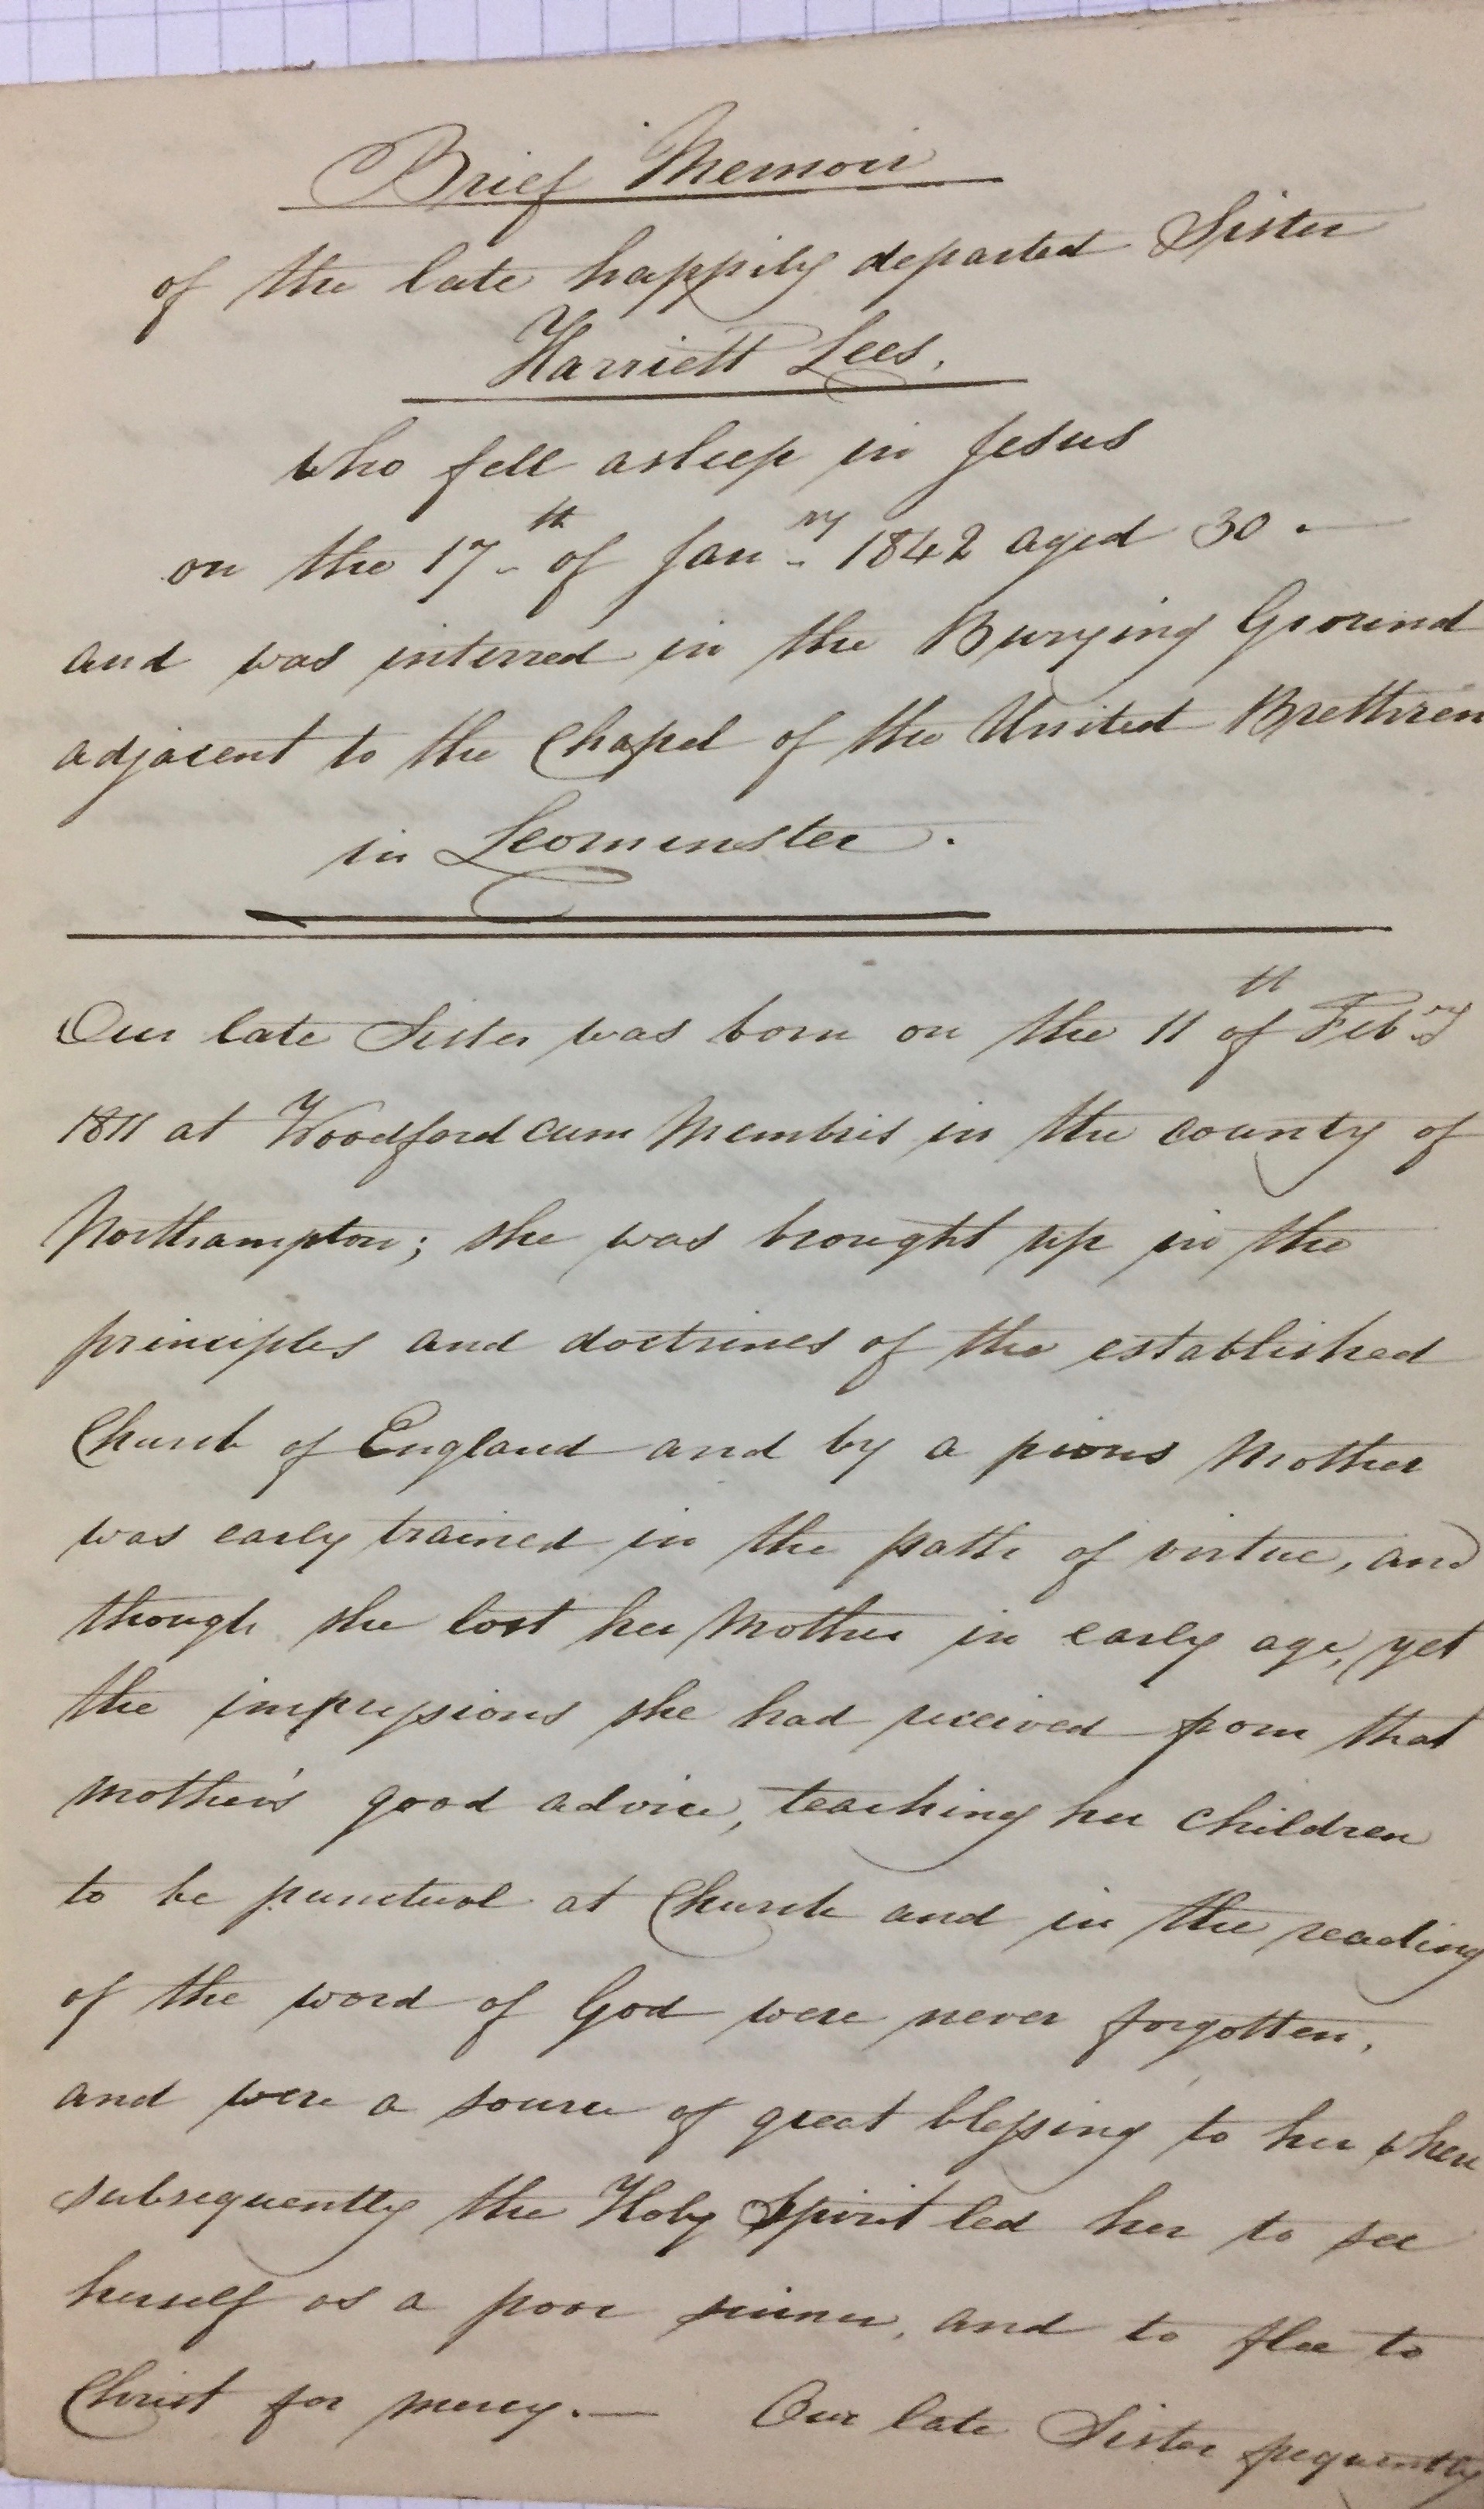 Brief Memoir
of the late happily departed Sister
Harriett Lees.
who fell asleep in Jesus
on the 17th of Janry 1842 aged 30.—
and was interred in the Burying Ground
adjacent to the Chapel of the United Brethren
in Leominster.
Our late Sister was born on the 11th of Febry
1811 at Woodford cum Membris in the county of
Northampton; she was brought up in the
principles and doctrines of the established
Church of England and by a pious Mother
was early trained in the path of virtue, and
though she lost her Mother in early age, yet
the impressions she had received from that
Mother's good advice, teaching her children
to be punctual at Church and in the reading
of the word of God were never forgotten,
and were a source of great blessing to her when
subsequently the Holy Spirit led her to see
herself as a poor sinner, and to flee to
Christ for mercy.— Our late Sister frequently